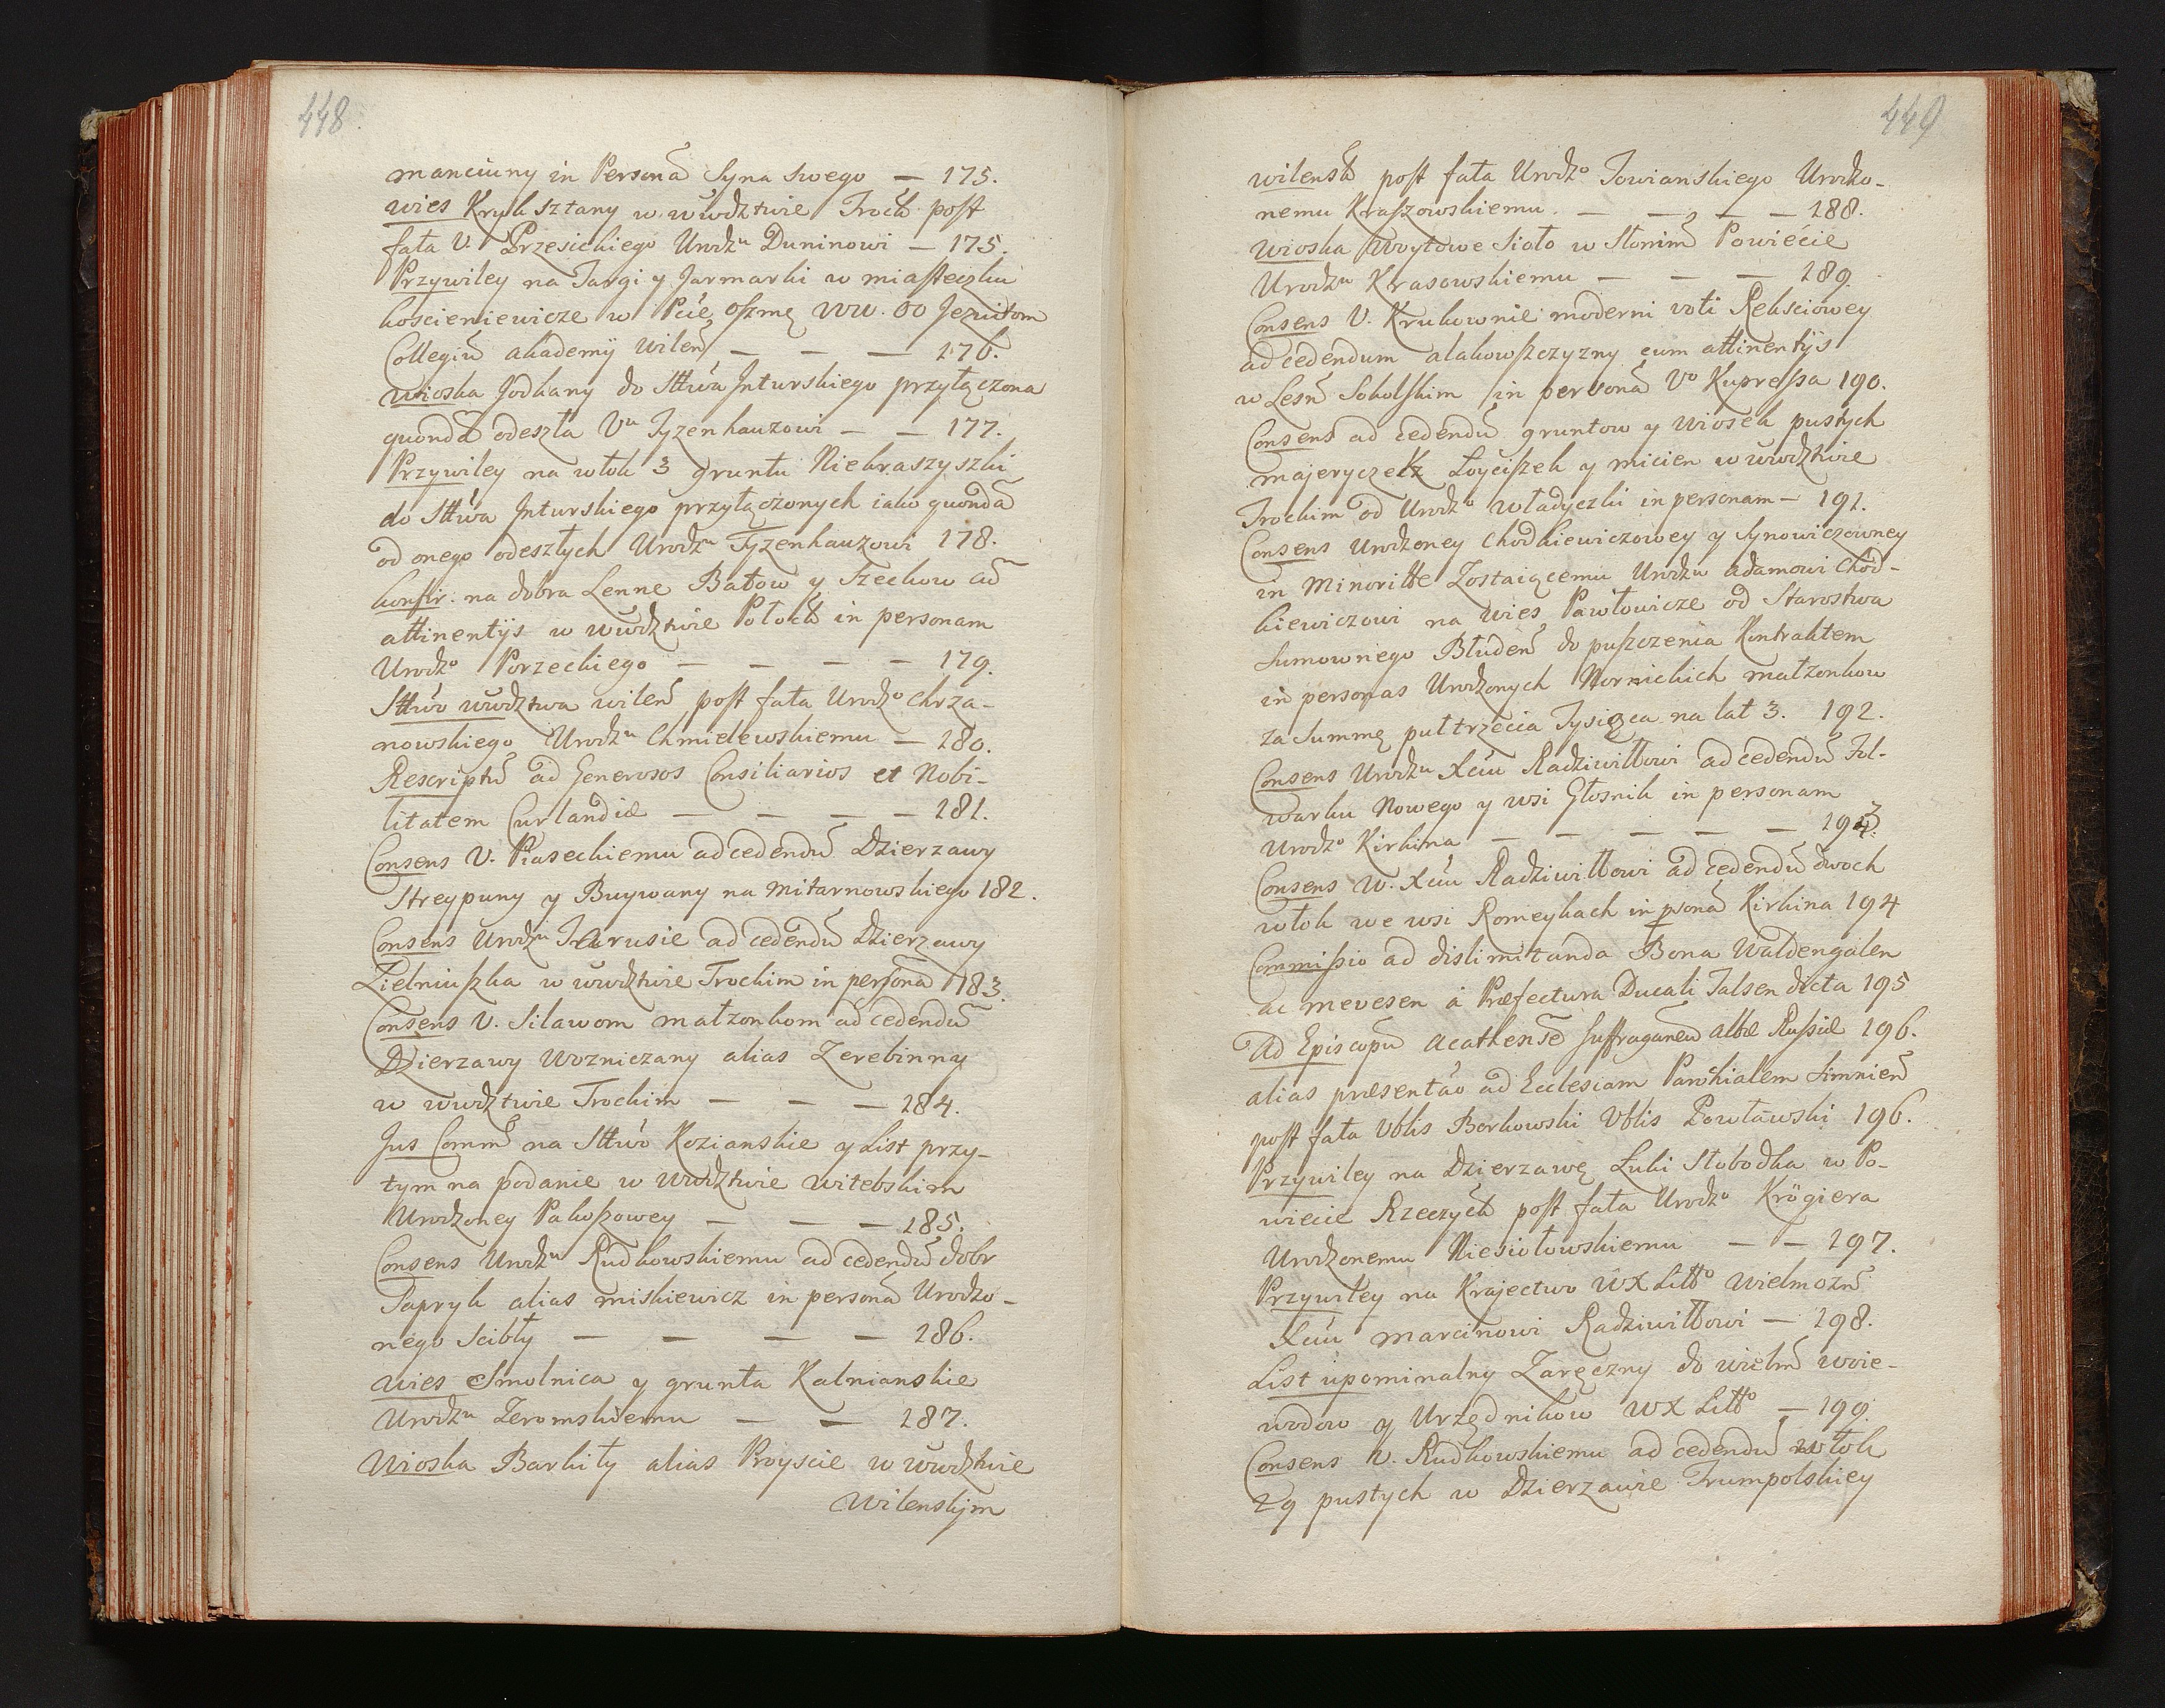 448.
manciuny in Persona Syna swego — 175.
wies Kryksztany w wwdztwie Trock post
fata U. Przesickiego Urodzu Duninowi — 175.
Przywiley na Targi y Jarmarki w miasteczku
koscieniewicze w Pcie Oszmę WW. OO Jezuitom
Collegiu akademij Wilen — — — 176.
wioska Jodkany do Sttwa Inturskiego przyłączona
quonda odeszła Uu Tyzenhauzowi — — 177.
Przywiley na włok 3 gruntu Niekraszyszki
do Sttwa Inturskiego przyłączonych iako quonda
od onego odeszłych Urodzu Tyzenhauzowi 178.
konfir. na dobra Lenne Batow y Szeckow cu
attinentijs w wwdztwie Połock in personam
Urodzo Porzeckiego — — — — 179.
Sttwo wwdztwa wilen post fata Urodzo Chrza-
nowskiego Urodzu Chmielewskiemu — 180.
Rescriptu ad Generosos Consiliarios et Nobi-
litatem Curlandiæ — — — — 181.
Consens U. Piaseckiemu ad cedendu Dzierzawy
Streypuny y Buywany na Mitarnowskiego 182.
Consens Urodzu Jarusie ad cedendu Dzierzawy
Zielniuszka w wwdztwie Trockim in persona 183.
Consens U. Siławom małzonkom ad cedendu
Dzierzawy Wozniczany alias Zerebinny
w wwdztwie Trockim — — — 184.
Jus Comm na Sttwo Kozianskie y List przy-
tym na podanie w wwdztwie witebskim
Urodzoney Pakoszowey — — — 185.
Consens Urodzu Rudkowskiemu ad cedendu dobr
Papryk alias miskiewicz in persona Urodzo-
nego Scibły — — — — 186.
wies Smolnica y grunta Kalnianskie
Urodzu Zeromskiemu — — 187.
Wioska Barkity alias Proyscie w wwdztwie
Wilenskjm
449
wilensk post fata Urodzo Jowianskiego Urodzo-
nemu Kraszowskiemu. — — — — 188.
wioska Woytowe Sioło w Słonim Powiecie
Urodzu Krasowskiemu — — — 189.
Consens U. Krukownie moderni voti Rekściowey
ad cedendum alakowszczyzny cum attinentijs
w Lesn Sokolskim in persona Uo Kupressa 190.
Consens ad cedendu gruntow y wiosek pustych
majeryczek Łoyciszek y micien w wwdztwie
Trockim od Urodzo Władyczki in personam — 191.
Consens Urodzoney Chodkiewiczowey y Synowiczowney
in Minoritte Zostaiącemu Urodzu Adamowi Chod-
kiewiczowi na wies Pawłowicze od Starostwa
Sumownego Błuden do puszczenia Kontraktem
in personas Urodzonych Nornickich małzonkow
za Summę pułtrzecia Tysiąca na lat 3. 192.
Consens Urodzu Xciu Radziwiłłowi ad cedendu Fol-
warku Nowego y wsi Głosnik in personam
Urodzo Kirkina — — — — — 193.
Consens W. Xciu Radziwiłłowi ad cedendu dwoch
włok we wsi Romeykach in psona Kirkina 194
Commissio ad dislimitanda Bona Waldengalen
ac mevesen à Præfectura Ducali Talsen dicta 195
Ad Episcopu Acathense suffraganeu Albæ Russiæ 196.
alias præsentao ad Ecclesiam Parochialem Simnien
post fata Vblis Borkowski Vblis Powławski 196.
Przywiley na Dzierzawę Łuki Słobodka w Po-
wiecie Rzeczyck post fata Urodzo Krögiera
Urodzonemu Niesiołowskiemu — — 197.
Przywiley na Krajectwo WX Litto Wielmozn
Xciu Marcinowi Radziwiłłowi — 198.
List upominalny Zaręczny do wielm woie-
wodow y Urzędnikow WX Litto — 199.
Consens U. Rudkowskiemu ad cedendu włok
29 pustych w Dzierzawie Trumpolskiey